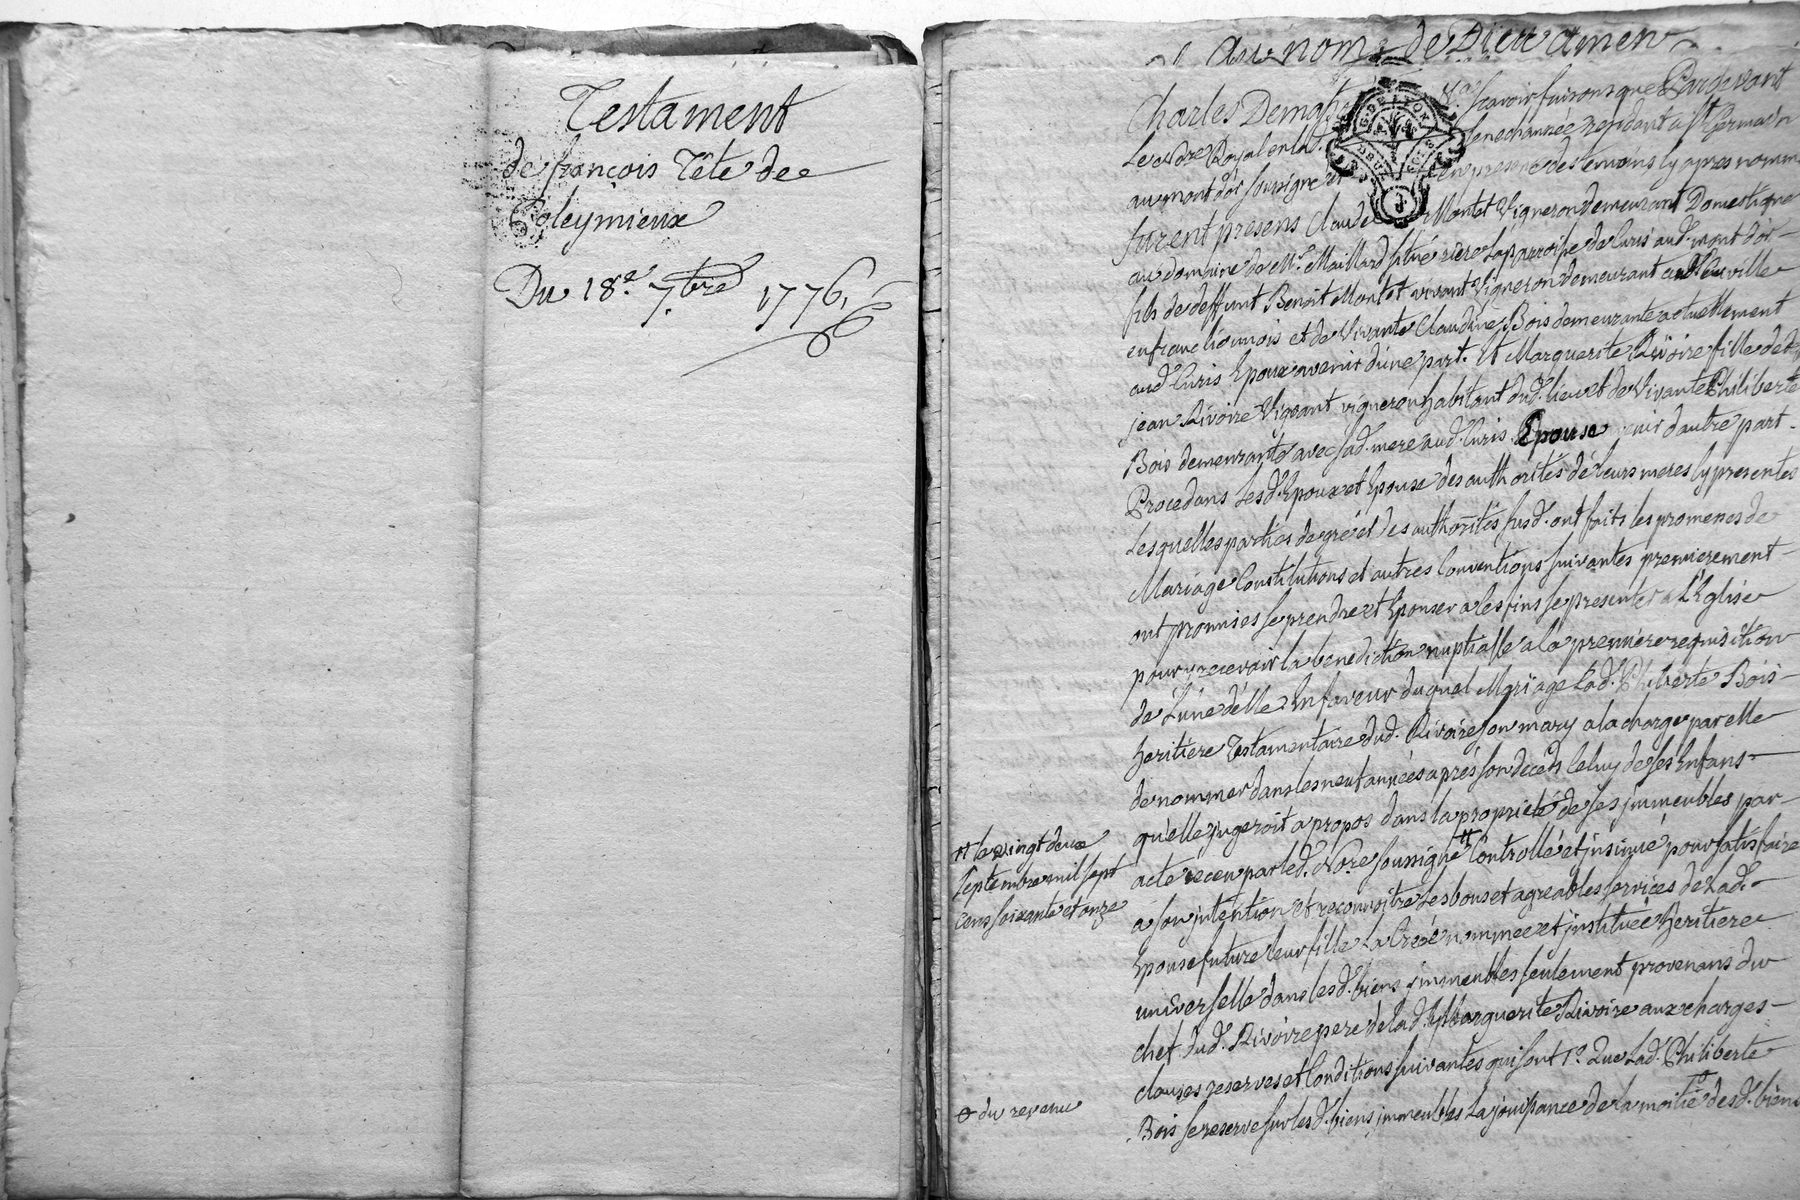 Testament
de françois Tête de
Poleymieux
Du 18e. 7.bre 1776,
au nom de Dieu amen
Charles Demo scavoir faisons que Pardevant
Le Nore Royal en la senechaussée residant a St Germain
au mont d'or soussigné et en presence des temoins cy apres nomm
furent presens Claude Montet Vigneron demeurant Domestique
au domaine de Mr. Maillard situé riere la parroisse de Curis aud. mont d'or
fils de deffunt Benoit Montet vivant Vigneron demeurant aud Neuville
en franc lionnois et de Vivante Claudine Bois demeurante actuellement
aud. Curis Epoux avenir d'une part. Et Marguerite Rivoire fille de
jean Rivoire Vigeant vigneron habitant dud. lieu et de Vivante Philiberte
Bois demeurante avec sad. mere aud. Curis Epouse nir d'autre part.
Procedans Lesd. Epoux et Epouse des authorités de leurs meres cy presentes
Lesquelles parties de gré et des authorités susd. ont faits les promesses de
Mariage Constitutions et autres Conventions suivantes premierement
ont promises se prendre et Epouser a les fins se presenter a L'Eglise
pour y recevoir la benediction nuptialle a la premiere requisition
de L'une d'elle En faveur duquel Mariage Lad. Philiberte Bois
heritiere Testamentaire dud. Rivoire son mary a la charge par elle
de nommer dans les neuf années aprés son decéds Celuy de ses Enfans
qu'elle jugeroit a propos dans la proprieté de ses jmmeubles par
acte receu par led. Nore. soussigné # Controllé et jnsinué pour satisfaire
# le vingt deux
septembre mil sept
cens soixante et onze
a son jntention et reconnoître Les bons et agreables services de Lad.
Epouse future leur fille La Créé nommée et jnstituée heritiere
universelle dans lesd. biens jmmeubles seulement provenans du
chef dud. Rivoire pere de lad. Marguerite Rivoire aux charges
clauses reserves et Conditions suivantes qui sont 1o. Que Lad. Philiberte
Bois se reserve sur lesd. biens jmmeubles La jouissance de la moitié desd. biens
du revenu